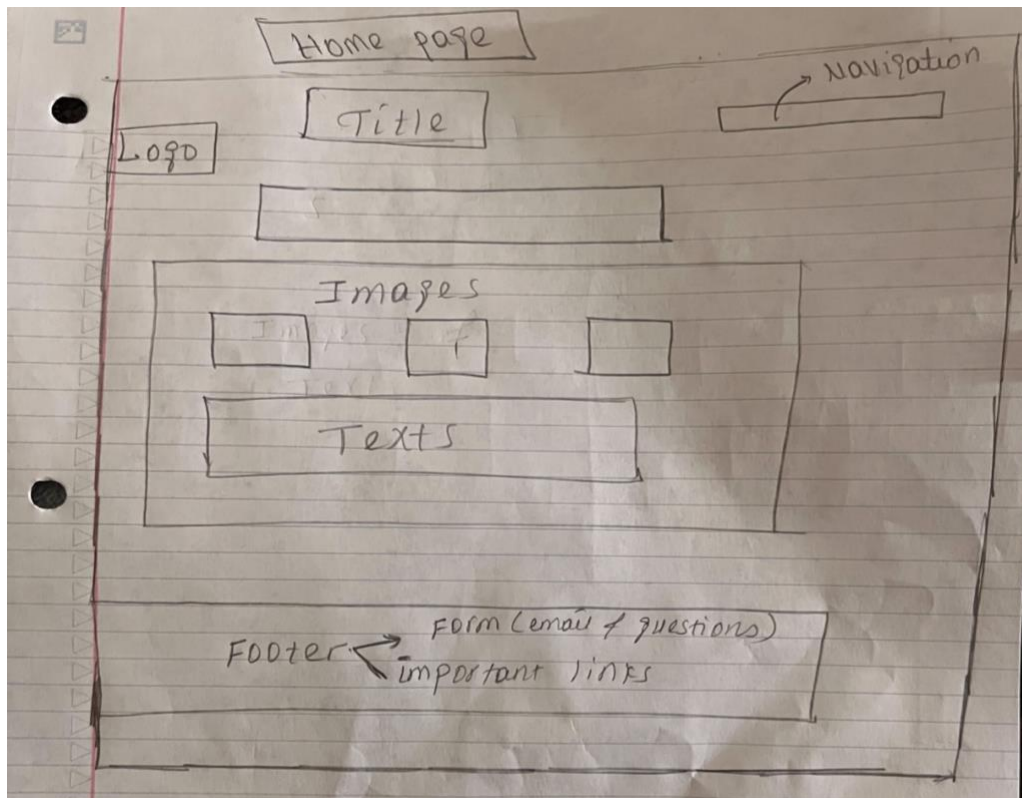 Home page
Navigation
Title
Logo
Images
Texts
Form (email & questions)
Footer
important links